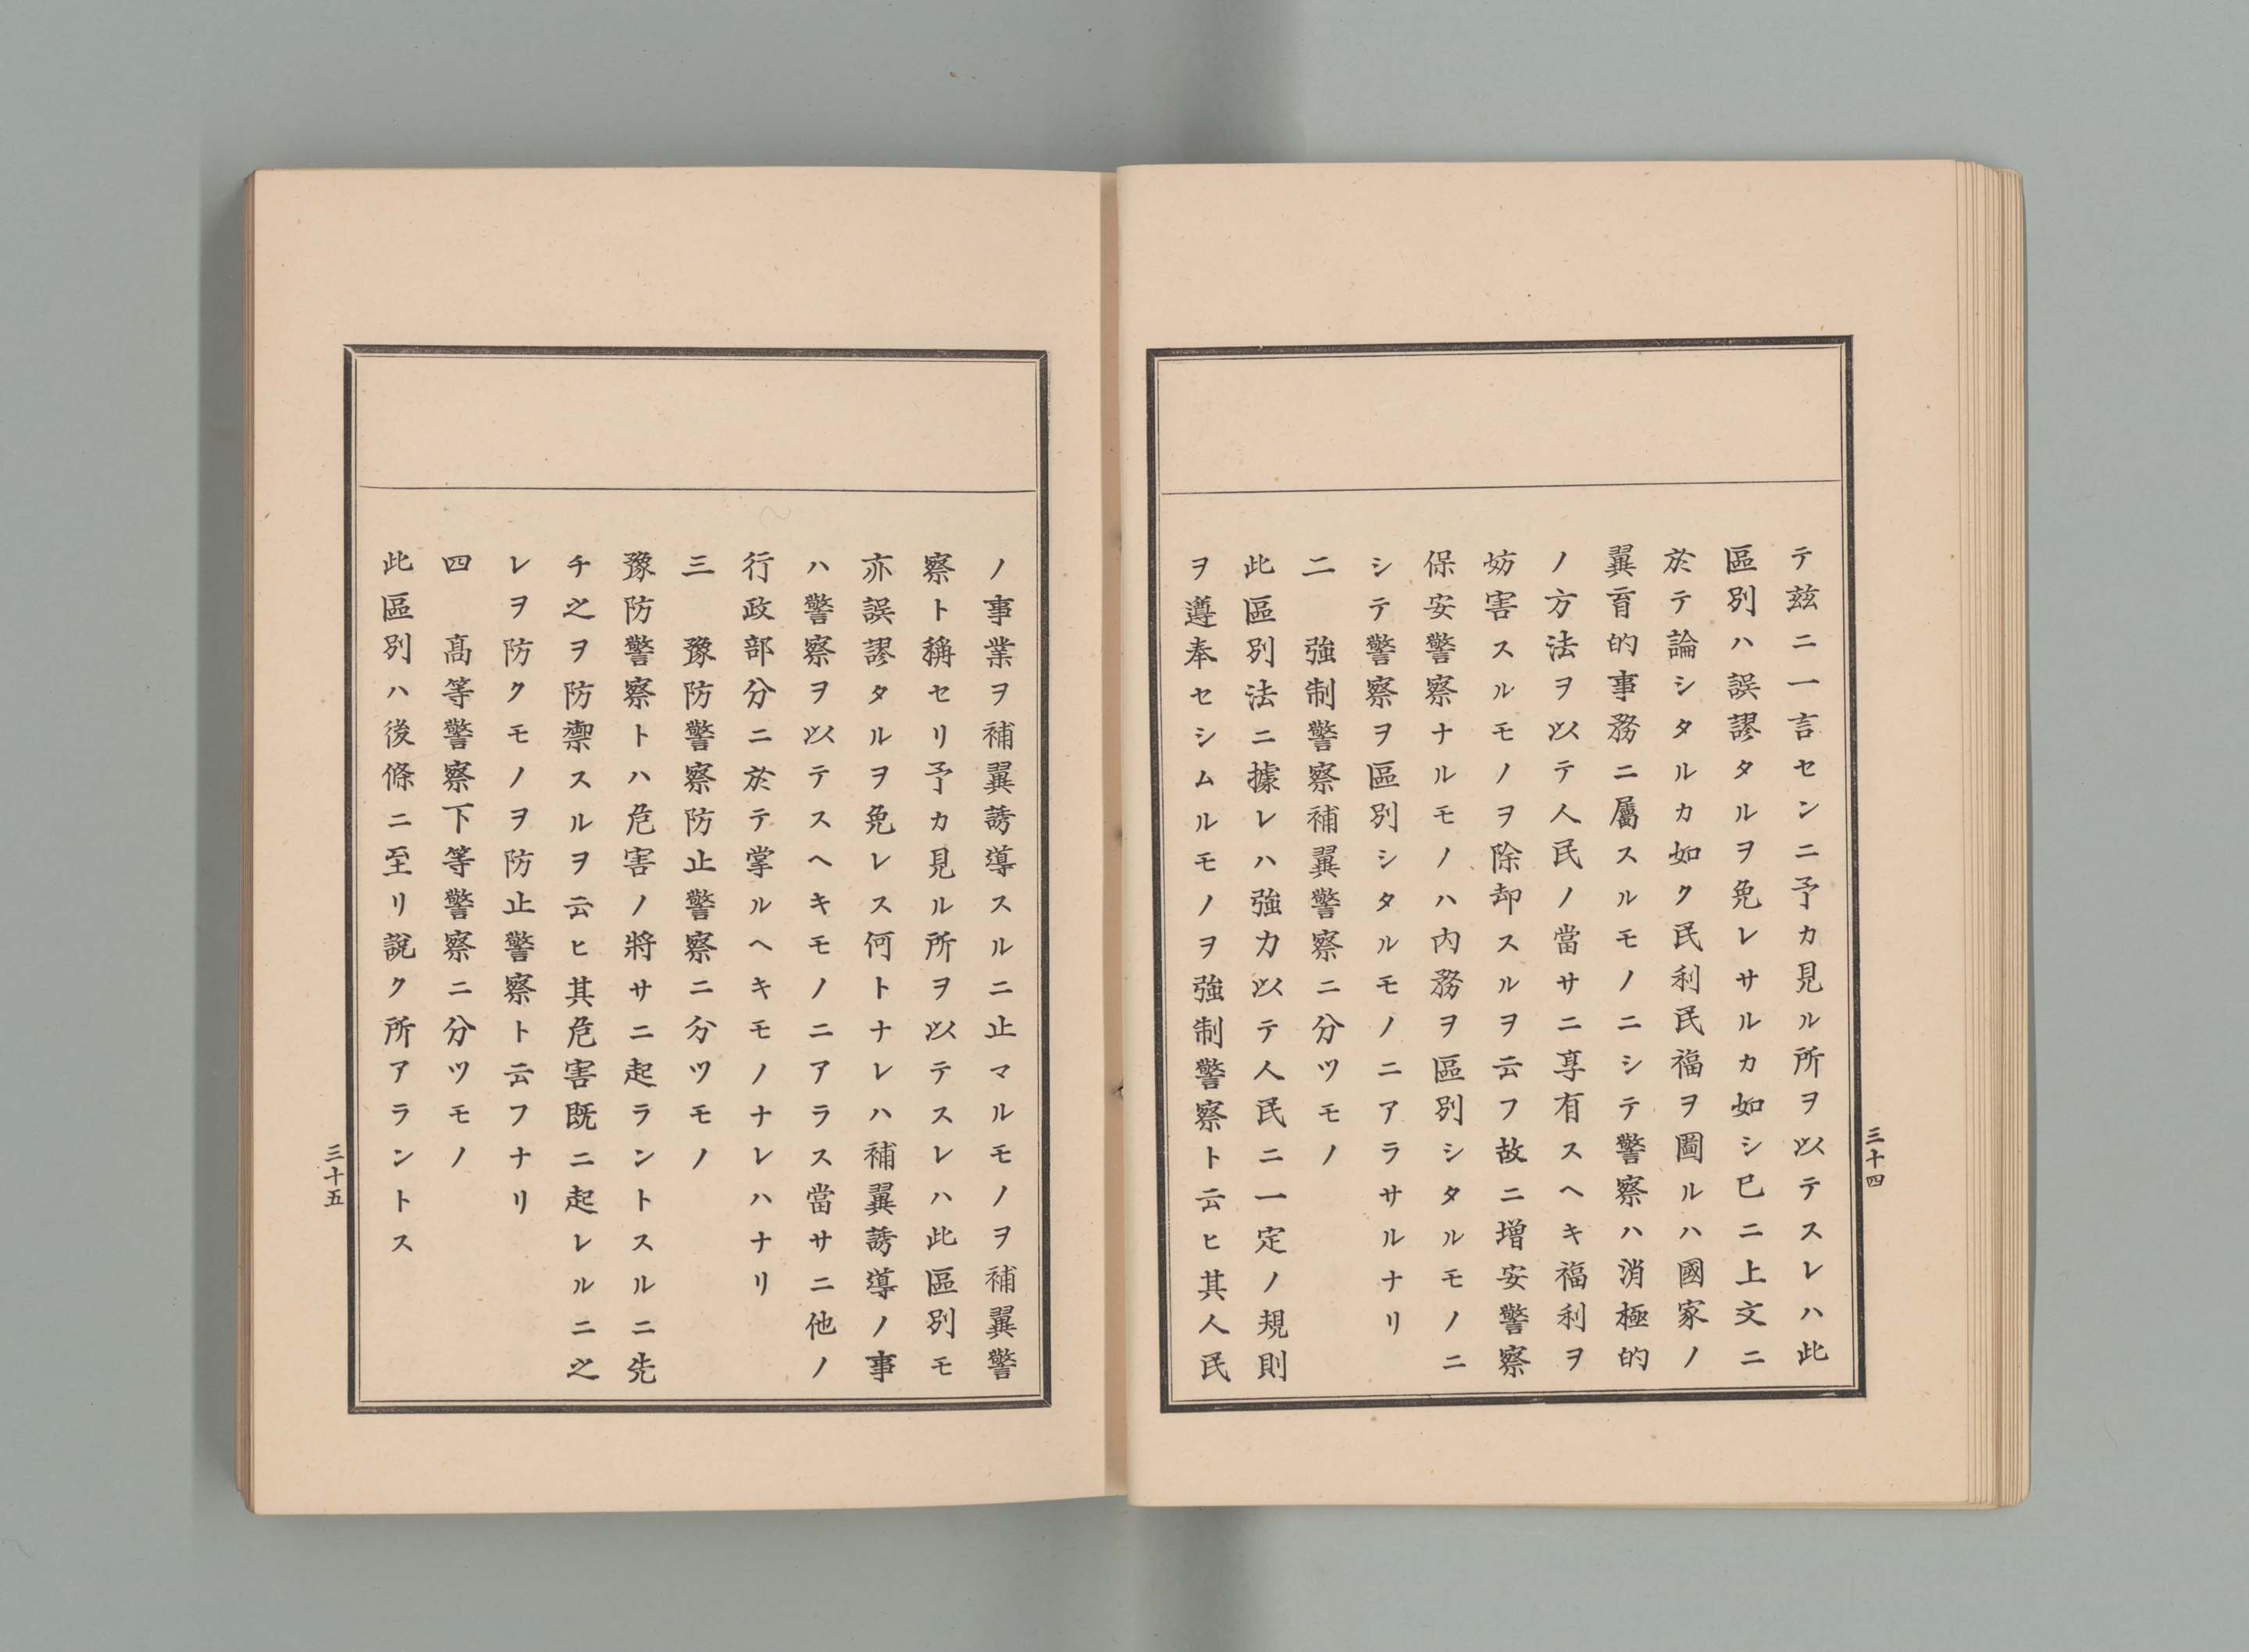 テ玆ニ一言センニ予カ見ル所ヲ以テスレハ此
區別ハ誤謬タルヲ免レサルカ如シ已ニ上文ニ
於テ論シタルカ如ク民利民福ヲ圖ルハ國家ノ
翼育的事務ニ屬スルモノニシテ警察ハ消極的
ノ方法ヲ以テ人民ノ當サニ享有スヘキ福利ヲ
妨害スルモノヲ除却スルヲ云フ故ニ增安警察
保安警察ナルモノハ内務ヲ區別シタルモノニ
シテ警察ヲ區別シタルモノニアラサルナリ
二　強制警察補翼警察ニ分ツモノ
此區別法ニ據レハ強力以テ人民ニ一定ノ規則
ヲ遵奉セシムルモノヲ強制警察ト云ヒ其人民
三十四
ノ事業ヲ補翼誘導スルニ止マルモノヲ補翼警
察ト稱セリ予カ見ル所ヲ以テスレハ此區別モ
亦誤謬タルヲ免レス何トナレハ補翼誘導ノ事
ハ警察ヲ以テスヘキモノニアラス當サニ他ノ
行政部分ニ於テ掌ルヘキモノナレハナリ
三　豫防警察防止警察ニ分ツモノ
豫防警察トハ危害ノ將サニ起ラントスルニ先
チ之ヲ防禦スルヲ云ヒ其危害既ニ起レルニ之
レヲ防クモノヲ防止警察ト云フナリ
四　高等警察下等警察ニ分ツモノ
此區別ハ後條ニ至リ說ク所アラントス
三十五